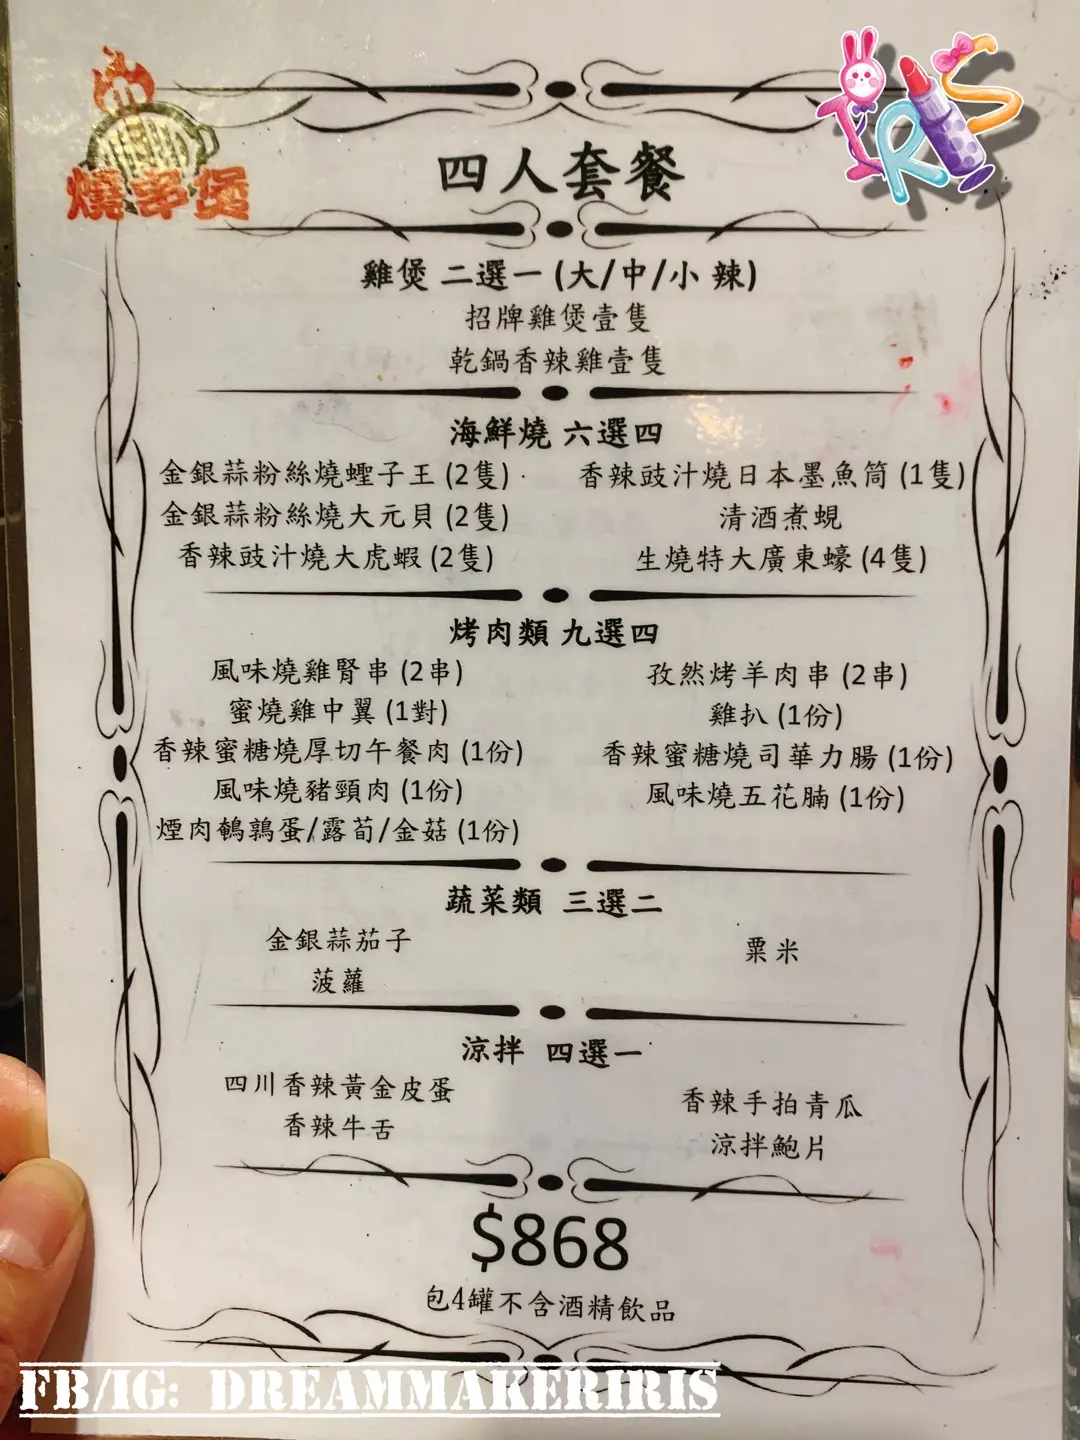 燒串煲
IRIS
四人套餐
雞煲 二選一 (大/中/小 辣)
招牌雞煲壹隻
乾鍋香辣雞壹隻
海鮮燒 六選四
金銀蒜粉絲燒蟶子王 (2隻)
香辣豉汁燒日本墨魚筒 (1隻)
金銀蒜粉絲燒大元貝 (2隻)
清酒煮蜆
香辣豉汁燒大虎蝦 (2隻)
生燒特大廣東蠔 (4隻)
烤肉類 九選四
風味燒雞腎串 (2串)
孜然烤羊肉串 (2串)
蜜燒雞中翼 (1對)
雞扒 (1份)
香辣蜜糖燒厚切午餐肉 (1份)
香辣蜜糖燒司華力腸 (1份)
風味燒豬頸肉 (1份)
風味燒五花腩 (1份)
煙肉鵪鶉蛋/露荀/金菇 (1份)
蔬菜類 三選二
金銀蒜茄子
粟米
菠蘿
涼拌 四選一
四川香辣黃金皮蛋
香辣手拍青瓜
香辣牛舌
涼拌鮑片
$868
包4罐不含酒精飲品
FB/IG: DREAMMAKERIRIS